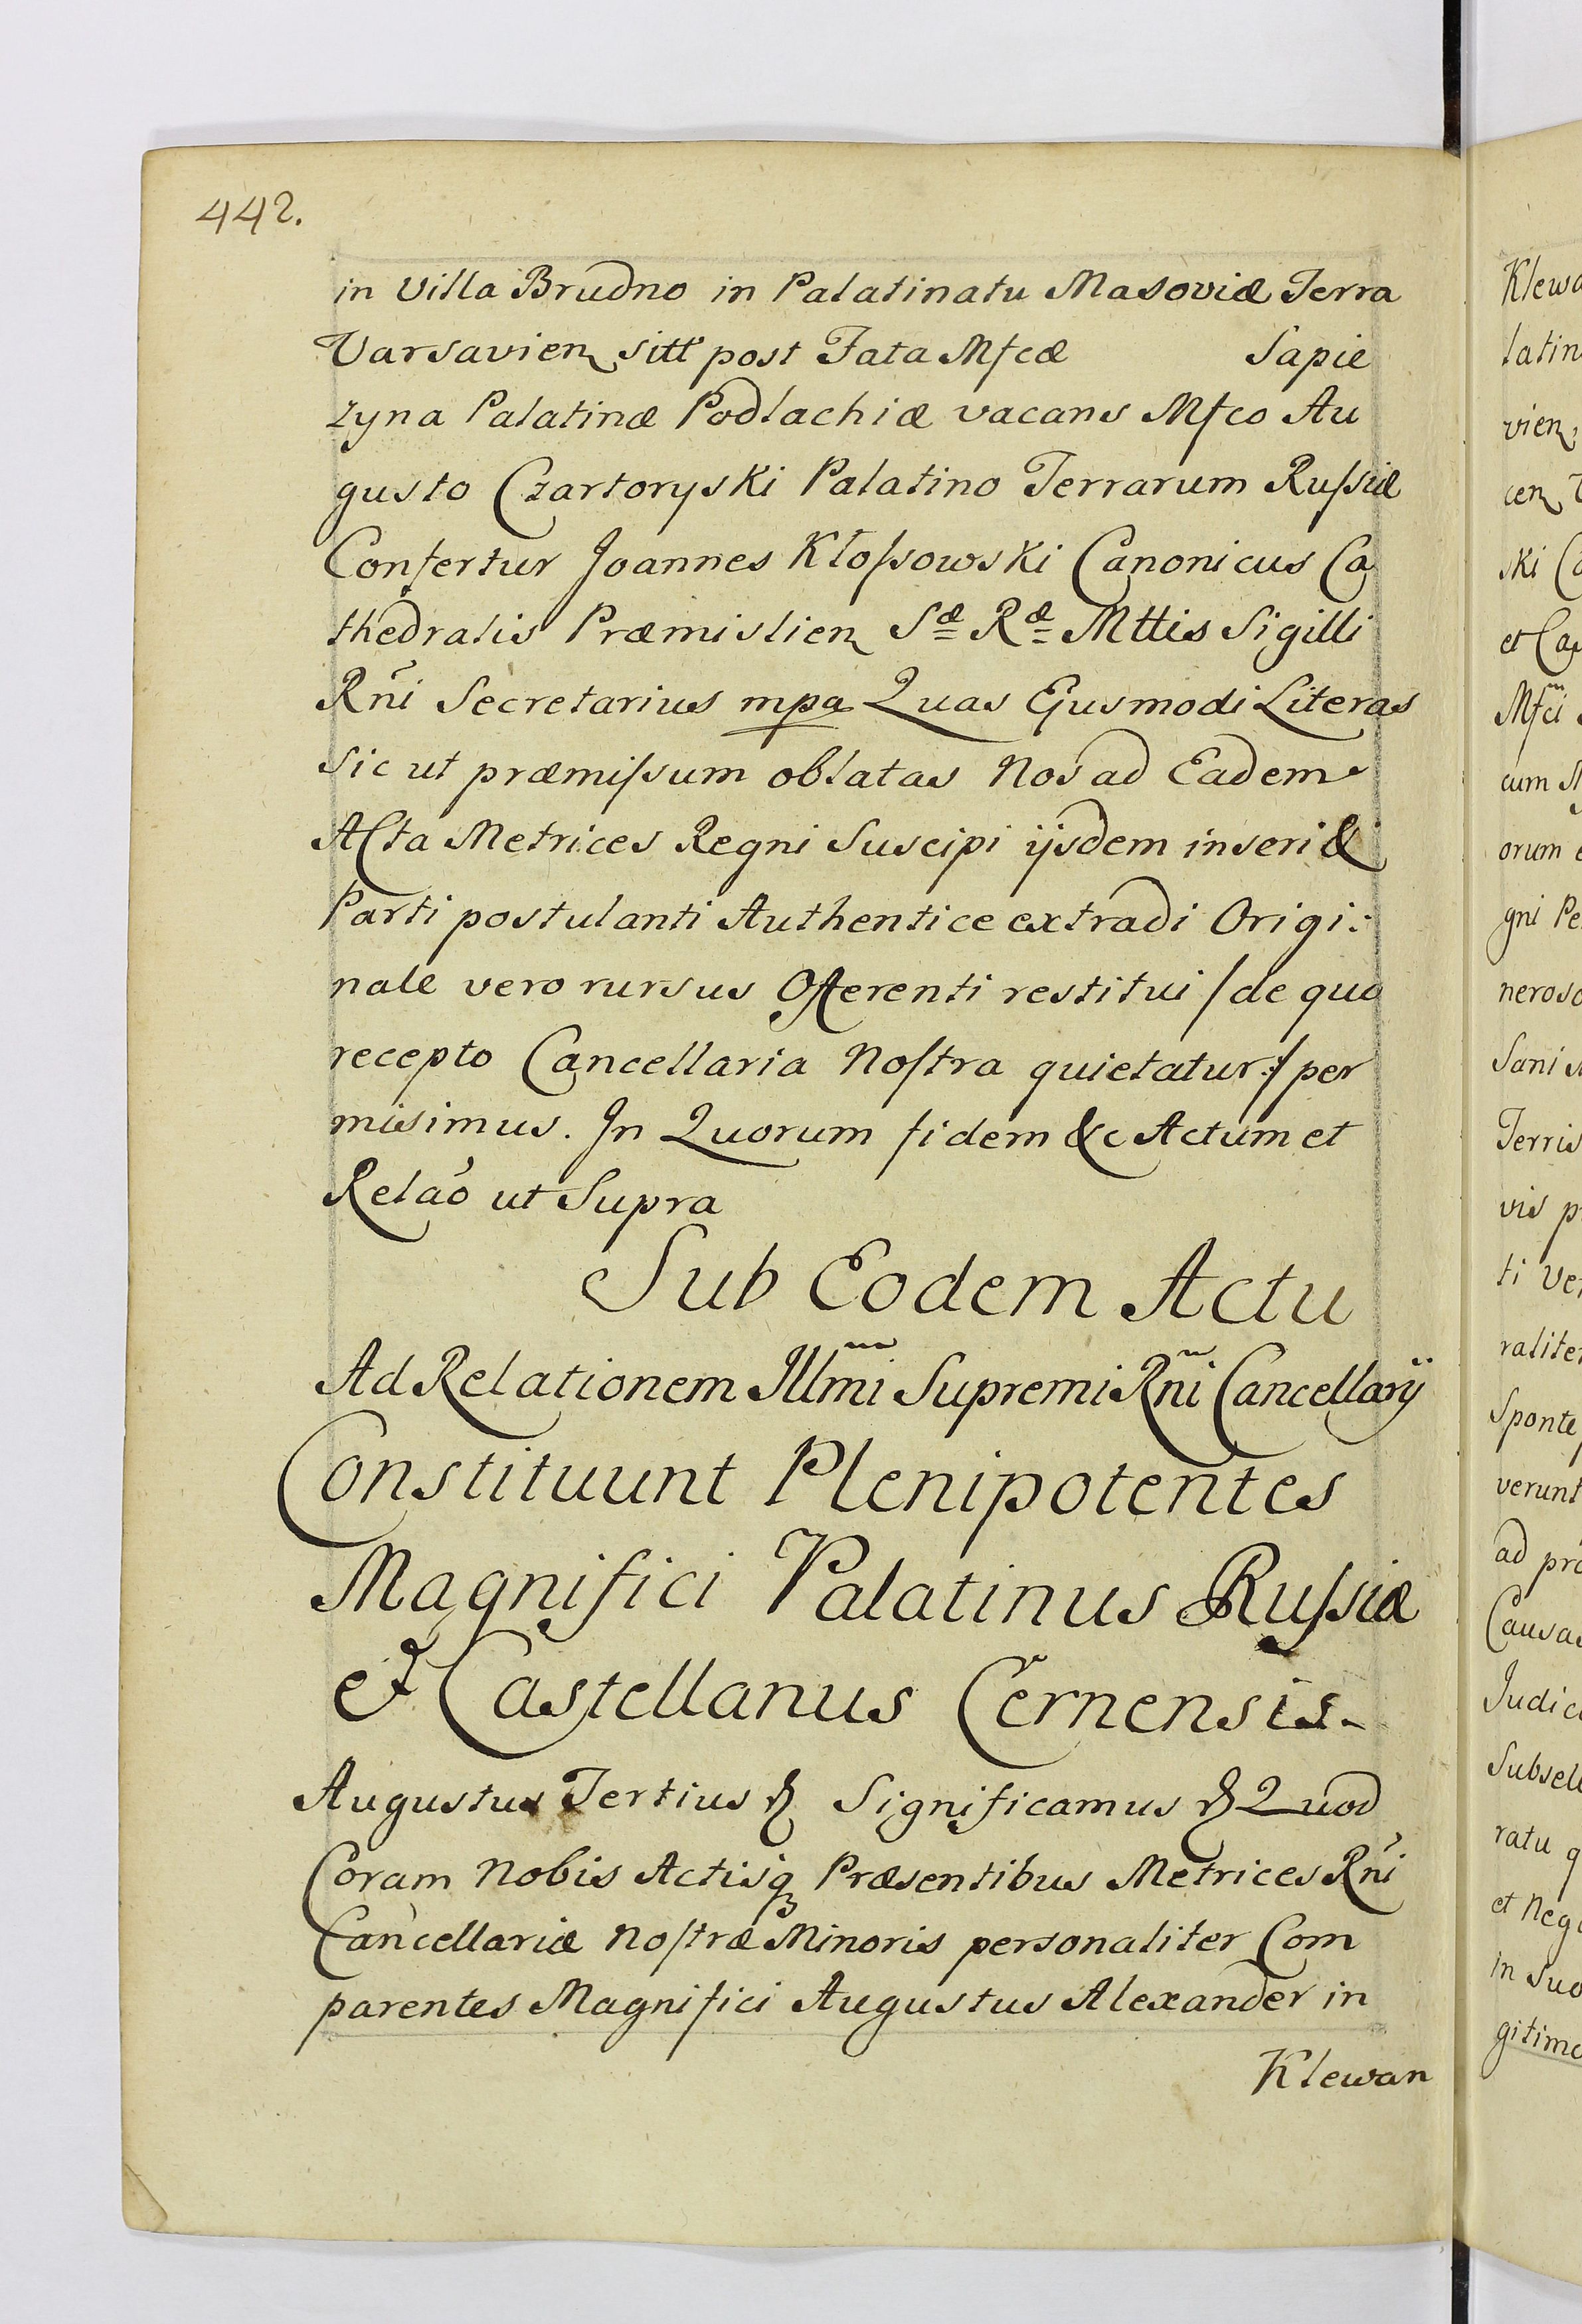 442.
in Villa Brudno in Palatinatu Masoviæ Terra
Varsavien sitt post Fata Mfcæ Sapie
zyna Palatinæ Podlachiæ vacans Mfco Au
gusto Czartoryski Palatino Terrarum Russiæ
Confertur Joannes Kłossowski Canonicus Ca
thedralis Præmislien Sæ Ræ Mttis Sigilli
Rni Secretarius mpa Quas Ejusmodi Literas
Sic ut præmissum oblatas Nos ad Eadem
Acta Metrices Regni Suscipi ijsdem inseri &
Parti postulanti Authentice extradi Origi:
nale vero rursus Offerenti restitui /de quo
recepto Cancellaria Nostra quietatur:/ per
misimus. In Quorum fidem &c Actum et
Relao ut Supra
Sub Eodem Actu
Ad Relationem Illmi Supremi Rni Cancellarij
Constituunt Plenipotentes
Magnifici Palatinus Russiæ
et Castellanus Cernensis
Augustus Tertius Significamus Quod
Coram Nobis Actisq Præsentibus Metrices Rni
Cancellariæ Nostræ Minoris personaliter Com
parentes Magnifici Augustus Alexander in
Klewan
latin
vien
cen
ski
et
Mfci
cum
orum
gni
neroso
Sani
Terris
vis
ti
ralite
Sponte
verunt
ad
Causas
Judic
Subsell
ratu
et Neg
in Suo
gitimo